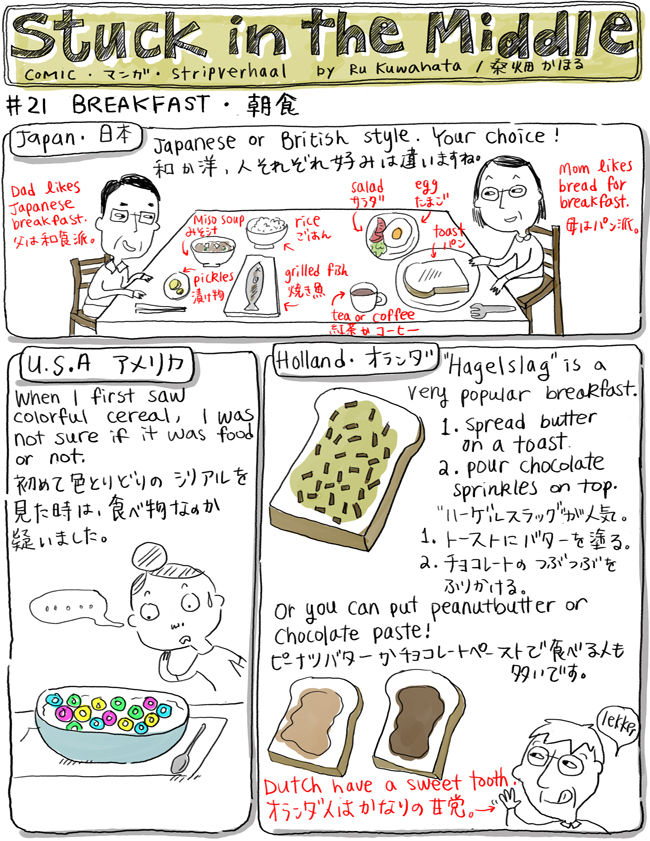 Stuck in the Middle
COMIC・マンガ・Stripverhaal by Ru Kuwahata / 桑畑かほる
#21 BREAKFAST・朝食
Japan・日本
Japanese or British style. Your choice!
和か洋、人それぞれ好みは違いますね。
Dad likes
Japanese
breakfast.
父は和食派。
Miso soup
みそ汁
rice
ごはん
pickles
漬け物
grilled fish
焼き魚
salad
サラダ
egg
たまご
toast
パン
tea or coffee
紅茶かコーヒー
Mom likes
bread for
breakfast.
母はパン派。
U.S.A アメリカ
When I first saw
colorful cereal, I was
not sure if it was food
or not.
初めて色とりどりのシリアルを
見た時は、食べ物なのか
疑いました。
.....
Holland・オランダ
"Hagelslag" is a
very popular breakfast.
1. spread butter
on a toast.
2. pour chocolate
sprinkles on top.
"ハーゲルスラッグ"が人気。
1. トーストにバターを塗る。
2. チョコレートのつぶつぶを
ふりかける。
Or you can put peanutbutter or
chocolate paste!
ピーナツバターかチョコレートペーストで食べる人も
多いです。
lekker
Dutch have a sweet tooth.
オランダ人はかなりの甘党。